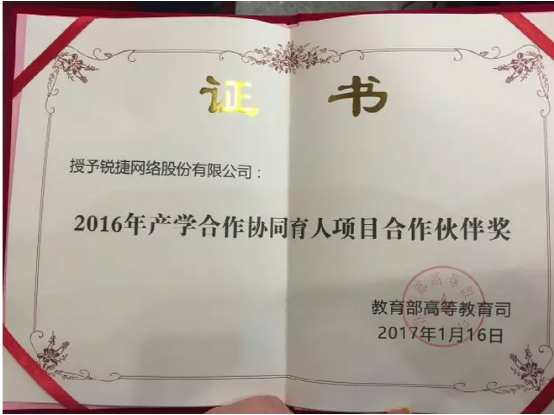 证书
授予锐捷网络股份有限公司：
2016年产学合作协同育人项目合作伙伴奖
教育部高等教育司
2017年1月16日